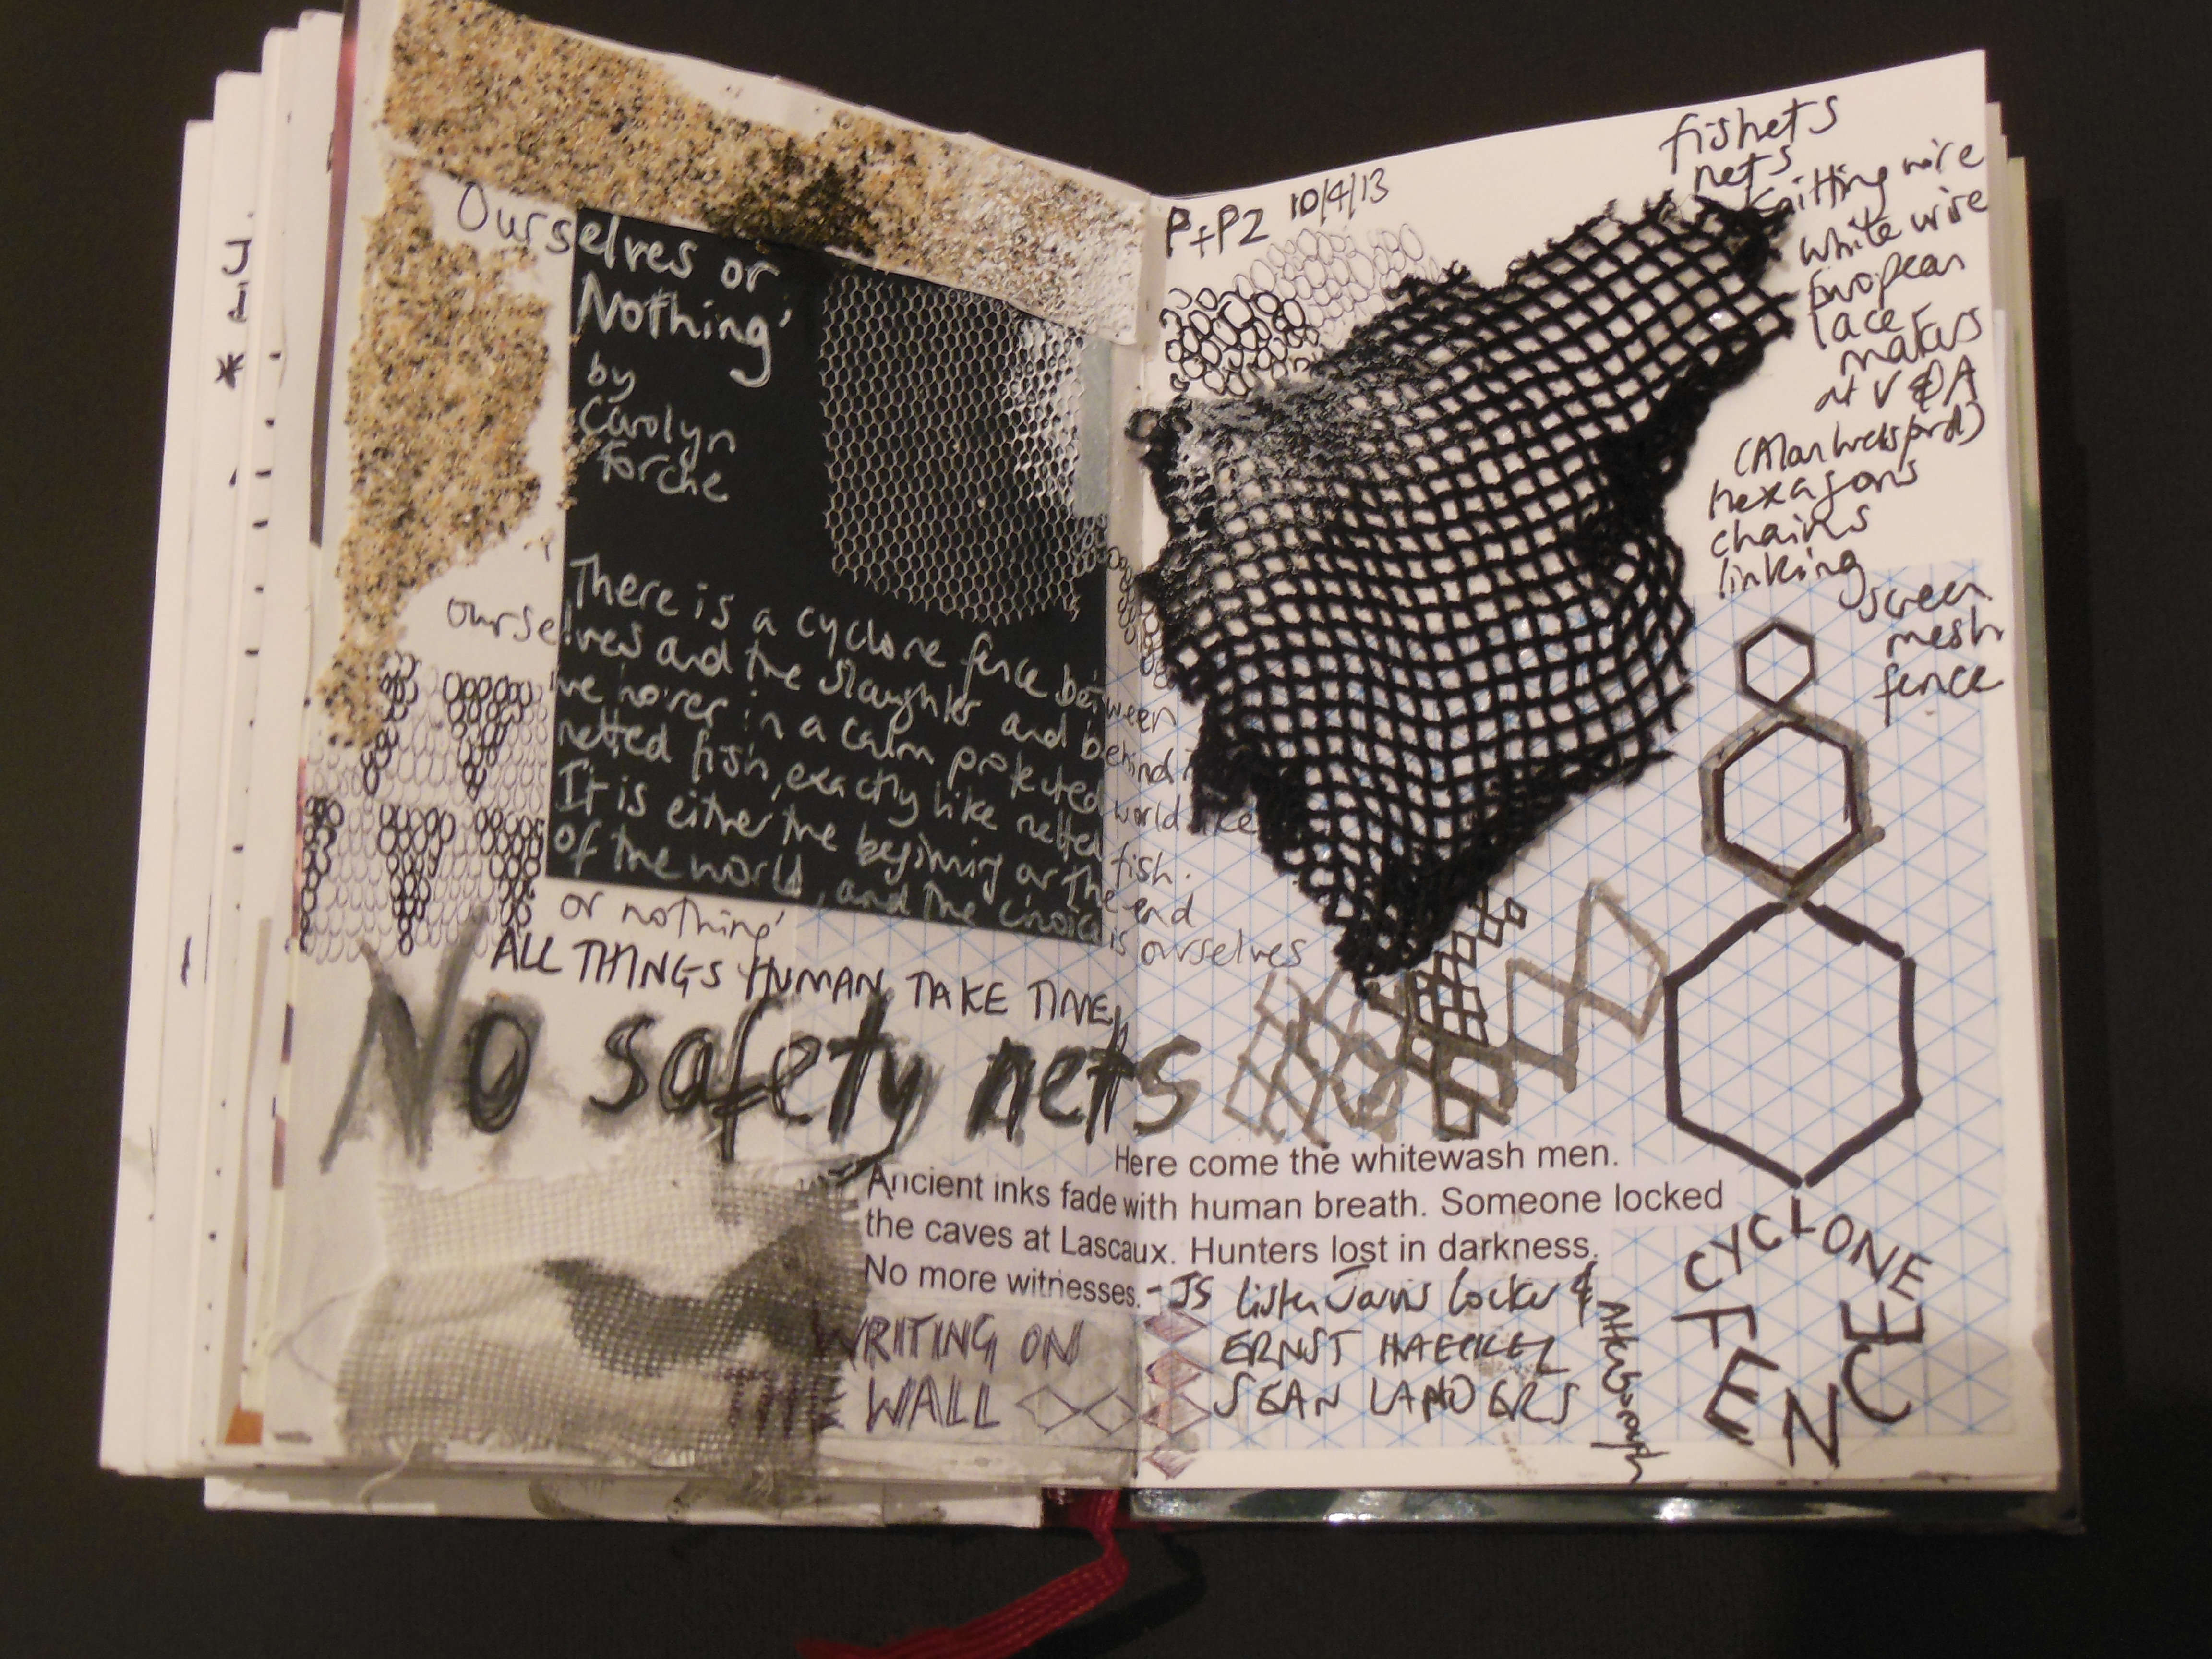 Ourselves or
Nothing'
by
Carolyn
Forche
There is a cyclone fence between
ourselves and the slaughter and behind it
we hover in a calm protected world like
netted fish, exactly like netted fish.
It is either the beginning or the end
of the world, and the choice is ourselves
or nothing'
ALL THINGS HUMAN TAKE TIME
No safety nets
P+P2 10/4/13
fishets
nets
knitting wire
white wire
European
lace
makers
at V&A
hexagons
chains
linking
screen
mesh
fence
Here come the whitewash men.
Ancient inks fade with human breath. Someone locked
the caves at Lascaux. Hunters lost in darkness.
No more witnesses. - JS
WRITING ON
THE WALL
Jarvis Cocker &
ERNST HAECKEL
SEAN LANDERS
Attenborough
CYCLONE
FENCE